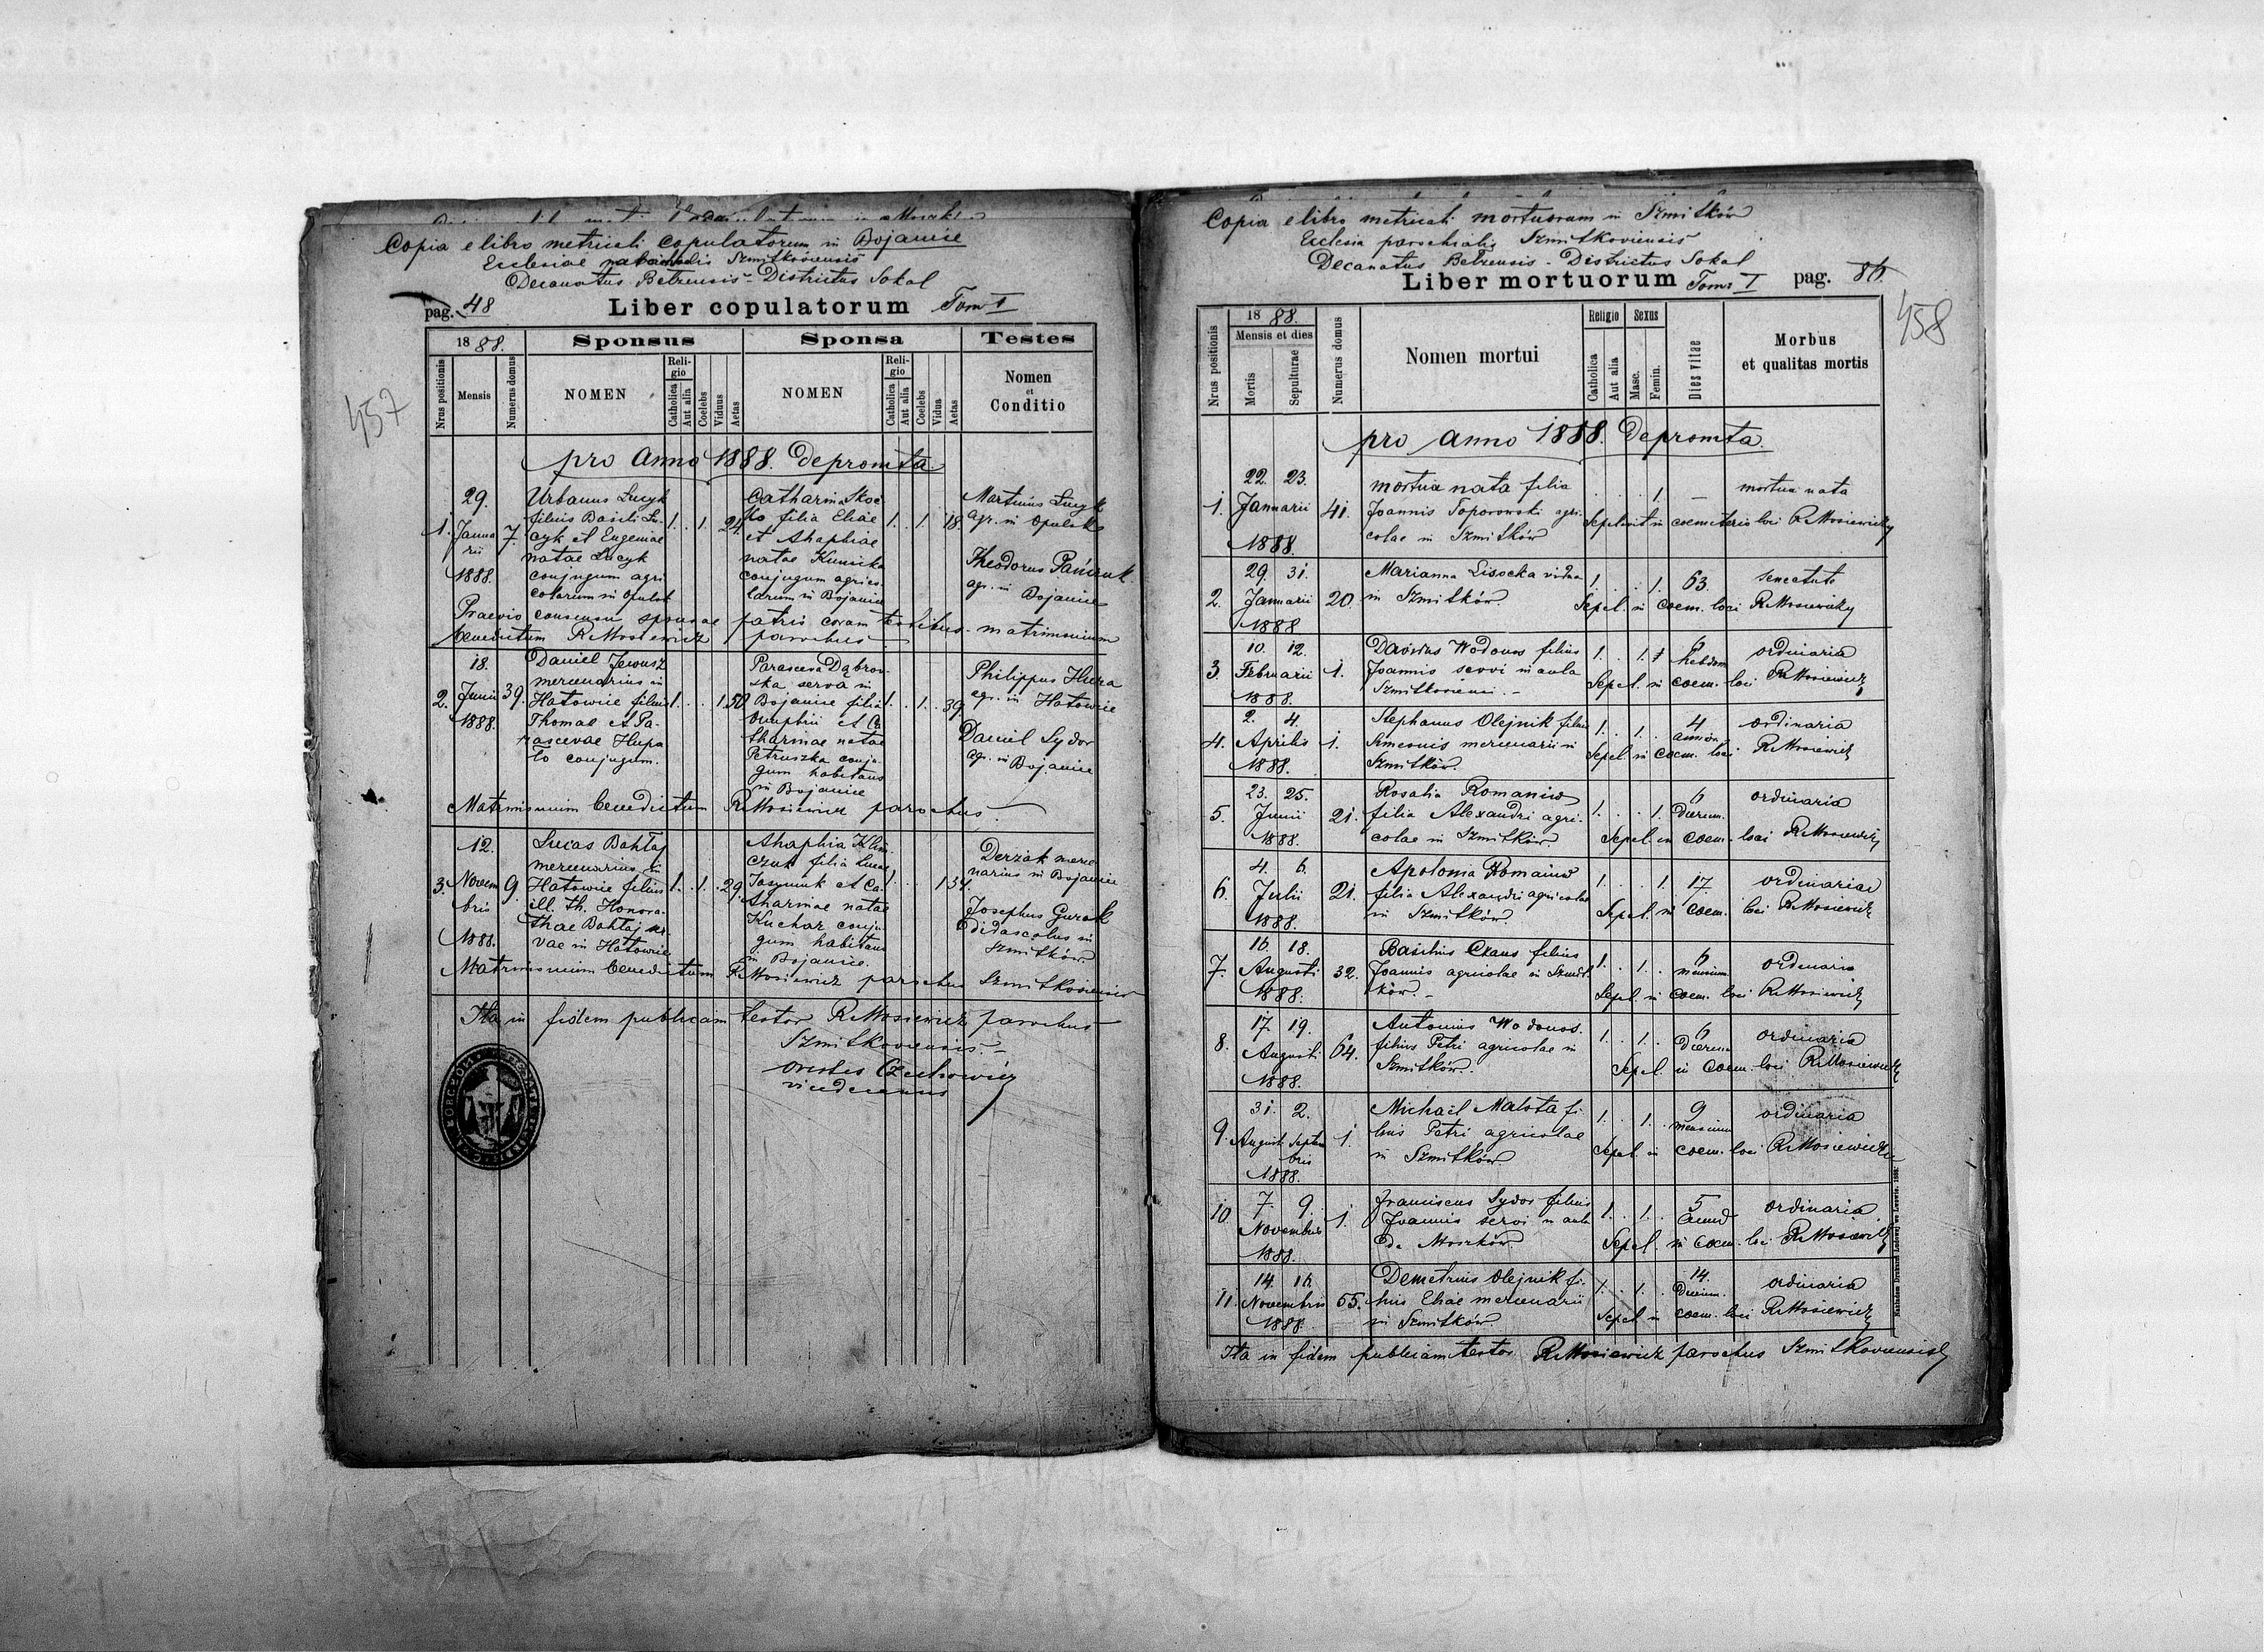 Copia e libro metricali copulatorum in Bojanice
Ecclesiae parochialis Szmitkoviensis
Decanatus Belzensis - Districtus Sokal
pag. 48 Liber copulatorum Tom I
457
18 88. Sponsus Sponsa Testes
Nrus positionis Mensis Numerus domus NOMEN Religio Catholica Aut alia Coelebs Viduus Aetas NOMEN Religio Catholica Aut alia Coelebs Vidua Aetas Nomen et Conditio
pro anno 1888. depromta.
1. 29. Januarii 1888. 7.
Urbanus Lucyk
filius Basili Lu-
cyk et Eugeniae
natae Lucyk
conjugum agri
colarum in Opulsk
1. . 1. 24.
Catharina Skoc
ko filia Eliae
et Ahaphiae
natae Kunicka
conjugum agrico-
larum in Bojanice
1. . 1. 18.
Martinus Lucyk
agr. in Opulsko
Theodorus Pańczuk
agr. in Bojanice
Praevio consensu sponsae patris coram testibus - matrimonium
benedictum R Mosiewicz parochus
2. 18. Junii 1888. 39.
Daniel Jewusz
mercenarius in
Hatowice filius
Thomae et Pa-
rascevae Hupa
ło conjugum.
1. . . 1. 50
Parasceva Dąbrow-
ska serva in
Bojanice filia
Onuphrii et Ca
tharinae natae
Petruszka conju-
gum habitans
in Bojanice
1. . 1. 39
Philippus Hura
agr. in Hatowice
Daniel Sydor
agr. in Bojanice
Matrimonium benedictum R Mosiewicz parochus.
3. 12. Novembris 1888. 9.
Lucas Bahtaj
mercenarius in
Hatowice filius
ill. th. Honora-
thae Bahtaj ser-
vae in Hatowice
1. . 1. . 29.
Ahaphia Klim-
czuk filia Lucae
Josymuk et Ca-
tharinae natae
Kuchar conju-
gum habitans
in Bojanice.
1. . . 1 34.
Derzak merce
narius in Bojanice
Josephus Gurak
didascolus in
Szmitków
Matrimonium benedictum R Mosiewicz parochus Szmitkoviensis
Ita in fidem publicam testor R Mosiewicz parochus
Szmitkoviensis. -
Orestes Czechowicz
vicedecanus
Copia e libro metricali mortuorum in Szmitków
Ecclesia parochialis Szmitkoviensis
Decanatus Belzensis - Districtus Sokal
Liber mortuorum Tom I pag. 86
458
Nrus positionis 18 88. Mensis et dies Mortis Sepulturae Numerus domus Nomen mortui Religio Catholica Aut alia Sexus Masc. Femin. Dies vitae Morbus et qualitas mortis
pro anno 1888. Depromta.
1. 22. 23. Januarii 1888. 41.
mortua nata filia
Joannis Toporowski agri-
colae in Szmitków
. . . 1. — mortua nata
Sepelivit in coemeterio loci R Mosiewicz
2. 29. 31. Januarii 1888 20.
Marianna Lisocka vidua
in Szmitków.
1. . . 1. 63. senectute
Sepel. in coem. loci R Mosiewicz
3. 10. 12. Februarii 1888. 1.
Davidus Wodonos filius
Joannis servi in aula
Szmitkoviensi. -
1. . 1. 6 hebdom ordinaria
Sepel. in coem. loci R Mosiewicz
4. 2. 4. Aprilis 1888. 1.
Stephanus Olejnik filius
Simeonis mercenarii in
Szmitków.
1. . 1. . 4 annor. ordinaria
Sepel. in coem. loci R Mosiewicz
5. 23. 25. Junii 1888. 21.
Rosalia Romaniw
filia Alexandri agri-
colae in Szmitków
1. . . 1. 6 Dierum. ordinaria
Sepel. in coem. loci R Mosiewicz
6. 4. 6. Julii 1888. 21.
Apolonia Romaniw
filia Alexandri agricolae
in Szmitków.
1. . . 1. 17. ordinariae
Sepel. in coem. loci R Mosiewicz
7. 16. 18. Augusti 1888. 32.
Basilius Czaus filius
Joannis agricolae in Szmit-
ków. -
1. . 1. . 6 mensium ordinaria
Sepel. in coem. loci R Mosiewicz
8. 17. 19. Augusti 1888. 64.
Antonius Wodonos.
filius Petri agricolae in
Szmitków.
1. . 1. . 6 Dierum ordinaria
Sepel. in coem. loci R Mosiewicz
9. 31. 2. Augusti Septembris 1888. 1.
Michael Malota fi-
lius Petri agricolae
in Szmitków.
1. . 1. . 9 mensium ordinaria
Sepel. in coem. loci R Mosiewicz
10. 7. 9. Novembris 1888. 1.
Franciscus Sydor filius
Joannis servi in aula
de Moszków
1. . 1. . 5 ordinaria
Sepel. in coem. loci R Mosiewicz
11. 14. 16. Novembris 1888. 55.
Demetrius Olejnik fi-
lius Eliae mercenarii
in Szmitków.
1. . 1. . 14. Dierum. ordinaria
Sepel. in coem. loci R Mosiewicz
Ita in fidem publicam testor R Mosiewicz parochus Szmitkoviensis
Nakładem Drukarni Ludowej we Lwowie.